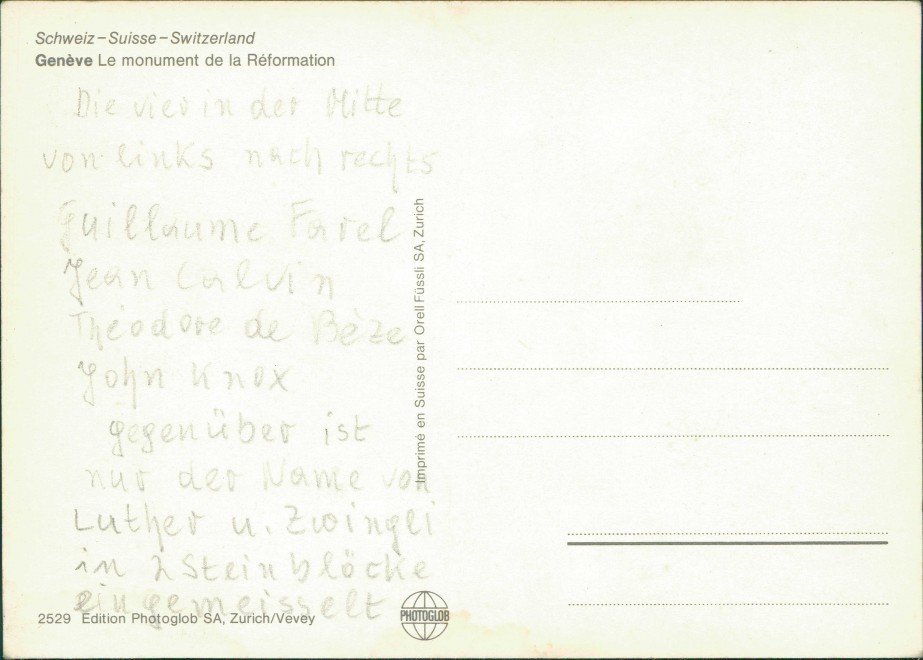 Schweiz – Suisse – Switzerland
Genève Le monument de la Réformation
Die vier in der Mitte
von links nach rechts
Guillaume Farel
Jean Calvin
Théodore de Bèze
John Knox
gegenüber ist
nur der Name von
Luther u. Zwingli
in 2 Steinblöcke
eingemeisselt
2529 Edition Photoglob SA, Zurich/Vevey
PHOTOGLOB
Imprimé en Suisse par Orell Füssli SA, Zurich